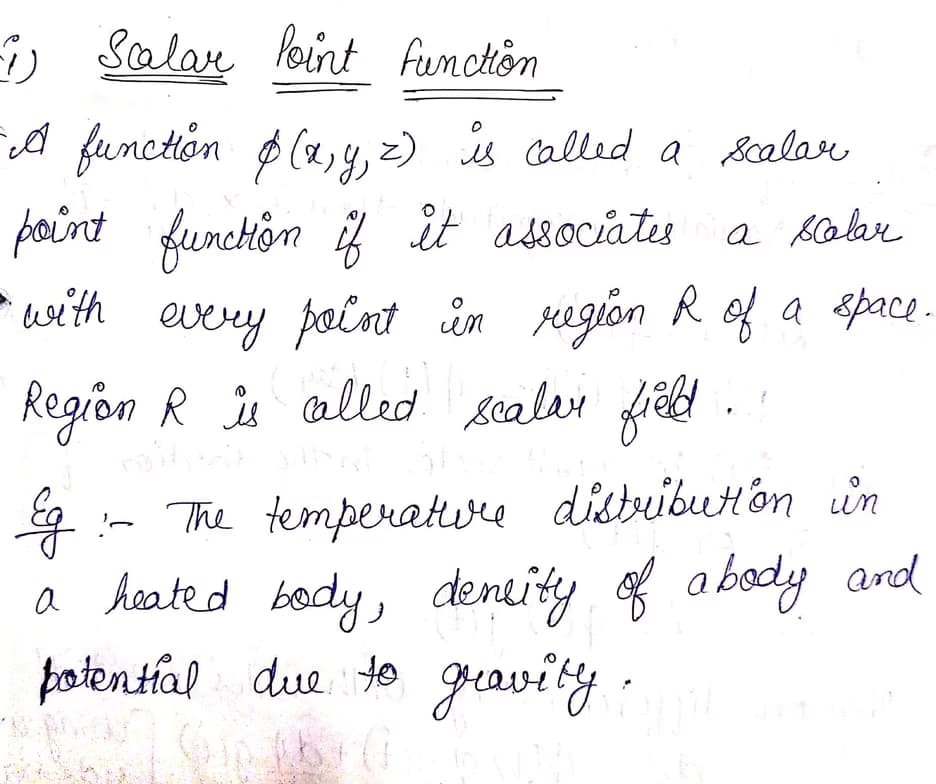 i) Scalar Point function
A function ϕ(x,y,z) is called a scalar
point function if it associates a scalar
with every point in region R of a space.
Region R is called scalar field.
Eg :- The temperature distribution in
a heated body, density of a body and
potential due to gravity.